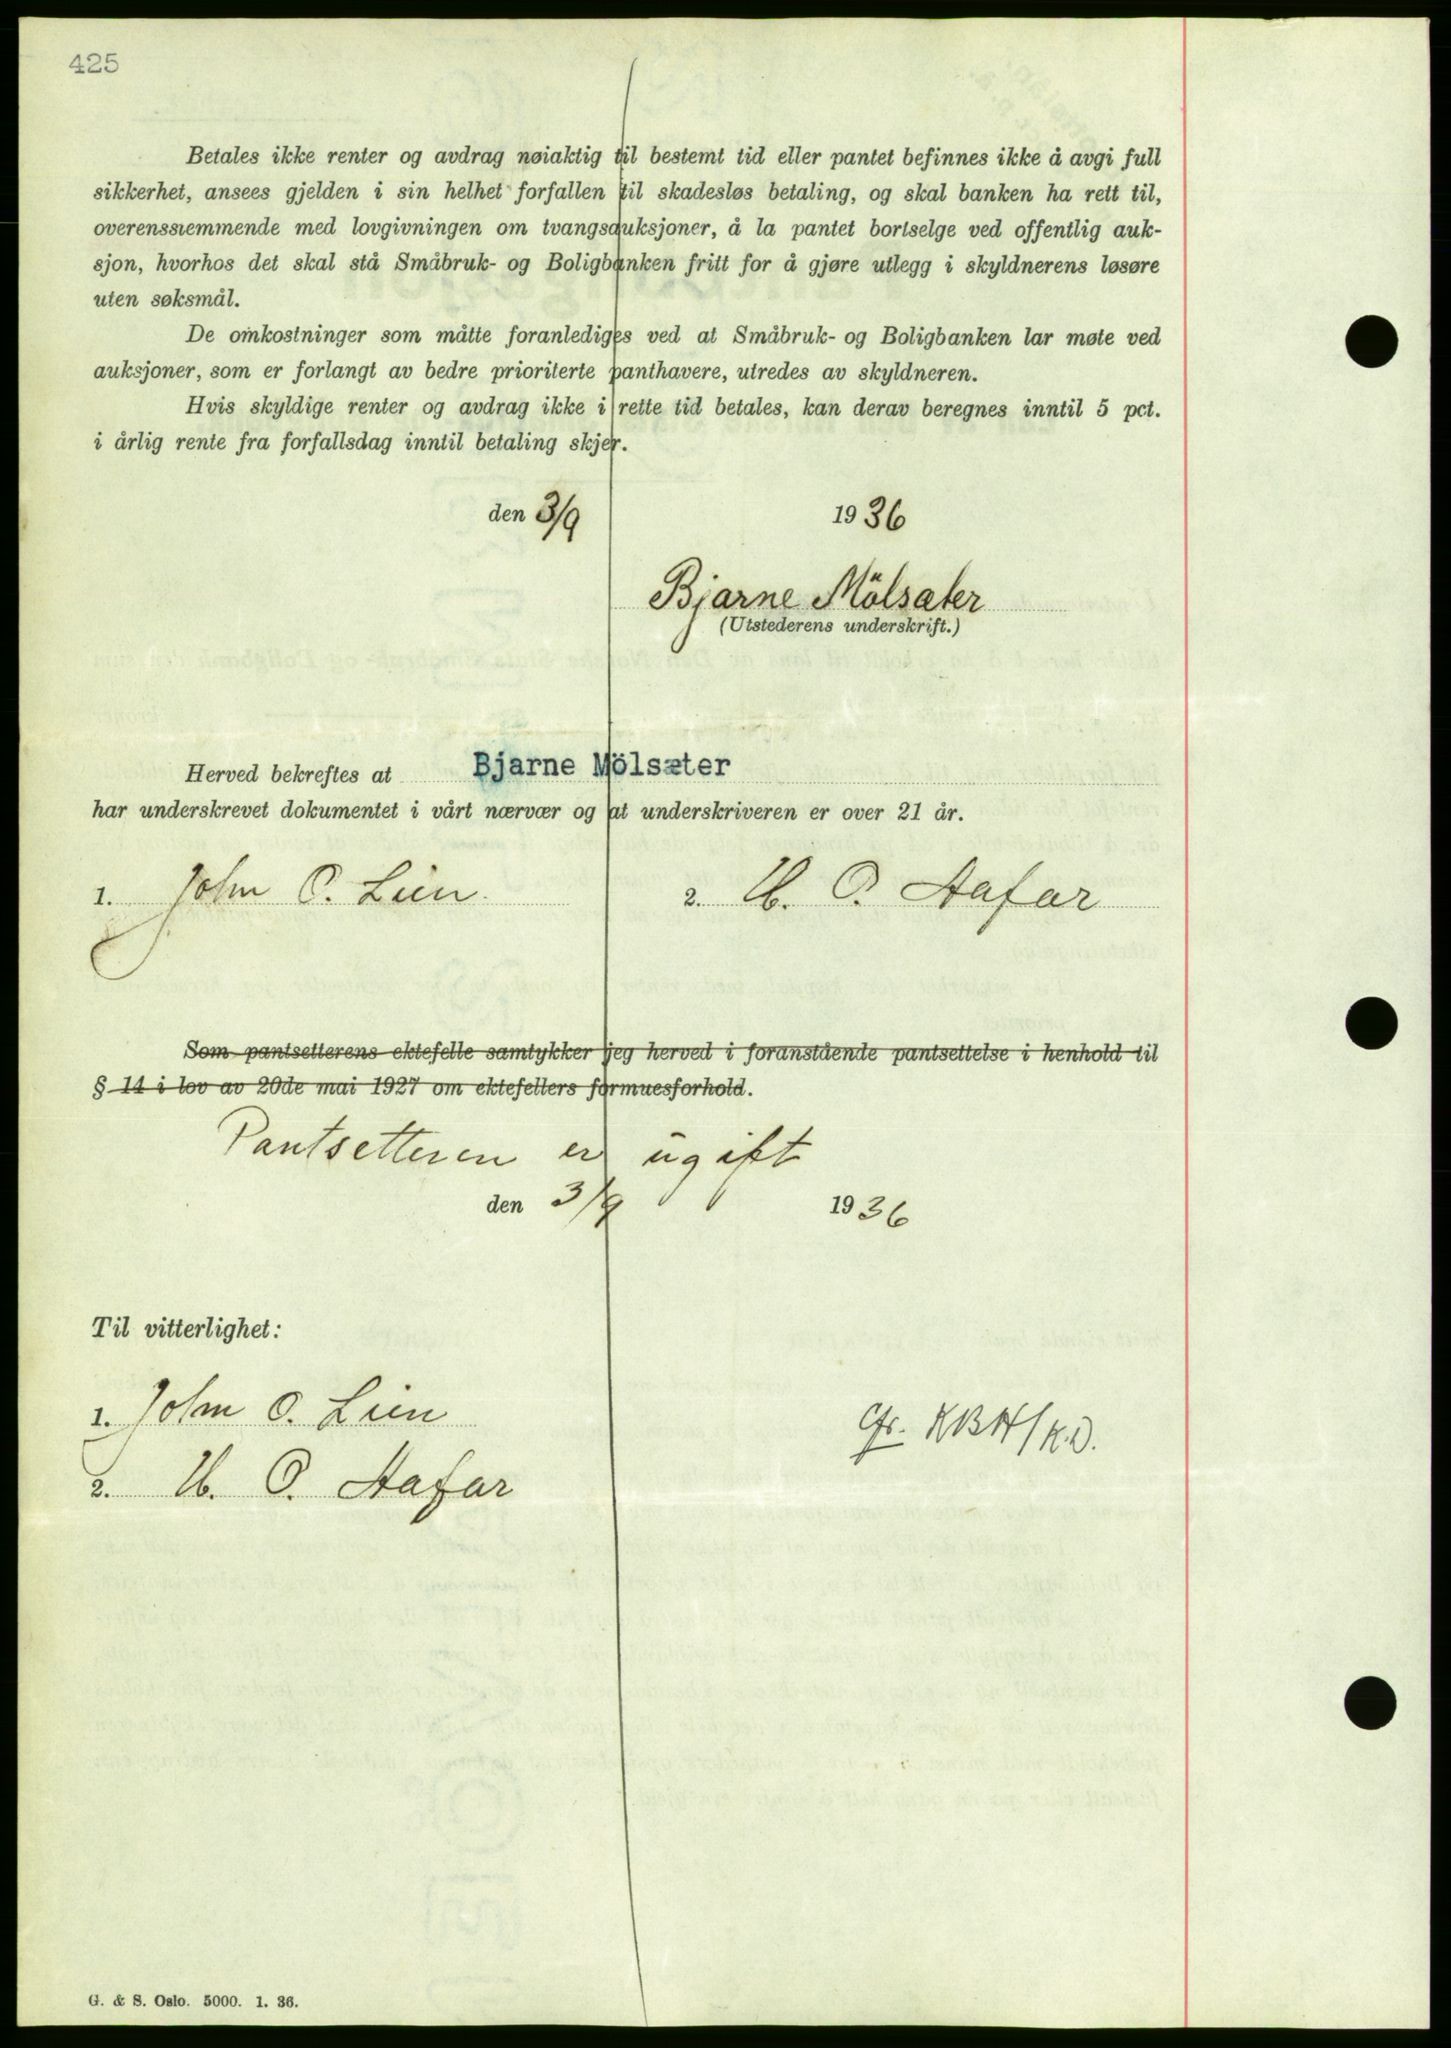 425
Betales ikke renter og avdrag nøiaktig til bestemt tid eller pantet befinnes ikke å avgi full
sikkerhet, ansees gjelden i sin helhet forfallen til skadesløs betaling, og skal banken ha rett til,
overenssiemmende med lovgivningen om tvangsauksjoner, å la pantet bortselge ved offentlig auk-
sjon, hvorhos det skal stå Småbruk- og Boligbanken fritt for å gjøre utlegg i skyldnerens løsøre
uten søksmål.
De omkostninger som måtte foranlediges ved at Småbruk- og Boligbanken lar møte ved
auksjoner, som er forlangt av bedre prioriterte panthavere, utredes av skyldneren.
Hvis skyldige renter og avdrag ikke i rette tid betales, kan derav beregnes inntil 5 pct.
i årlig rente fra forfallsdag inntil betaling skjer.
den 3/9 1936
Bjarne Mölsæter
(Utstederens underskrift.)
Herved bekreftes at Bjarne Mölsæter
har underskrevet dokumentet i vårt nærvær og at underskriveren er over 21 år.
1. John O. Lien. 2. O. Hafar
Som pantsetterens ektefelle samtykker jeg herved i foranstående pantsettelse i henhold til
§ 14 i lov av 20de mai 1927 om ektefellers formuesforhold.
Pantsetteren er ugift
den 3/9 1936
Til vitterlighet:
1. John O. Lien
2. O. Hafar
G. & S. Oslo. 5000. 1. 36.